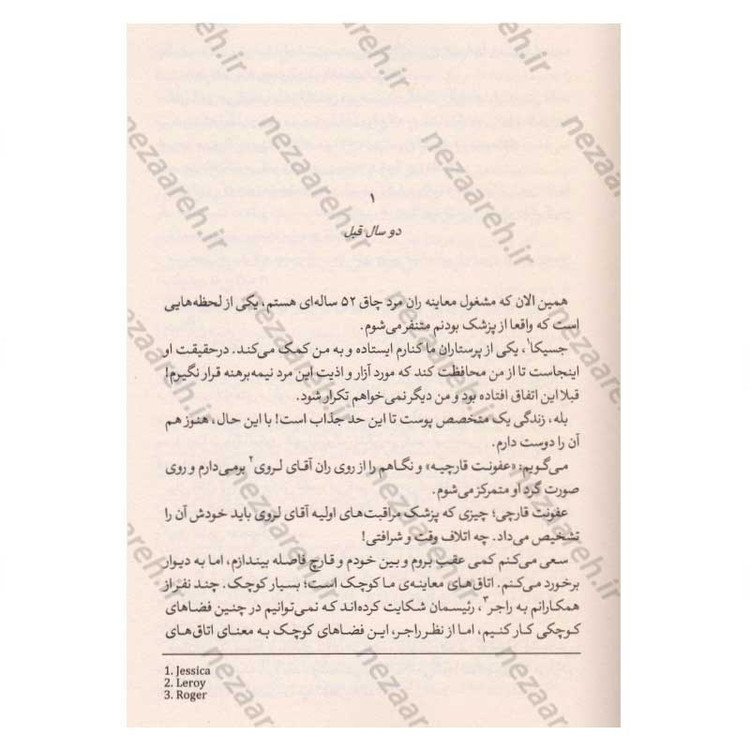 ۱
دو سال قبل
همین الان که مشغول معاینه ران مرد چاق ۵۲ ساله‌ای هستم، یکی از لحظه‌هایی
است که واقعا از پزشک بودنم متنفر می‌شوم.
جسیکا۱، یکی از پرستاران ما کنارم ایستاده و به من کمک می‌کند. درحقیقت او
اینجاست تا از من محافظت کند که مورد آزار و اذیت این مرد نیمه‌برهنه قرار نگیرم!
قبلا این اتفاق افتاده بود و من دیگر نمی‌خواهم تکرار شود.
بله، زندگی یک متخصص پوست تا این حد جذاب است! با این حال، هنوز هم
آن را دوست دارم.
می‌گویم: «عفونت قارچیه» و نگاهم را از روی ران آقای لروی۲ برمی‌دارم و روی
صورت گرد او متمرکز می‌شوم.
عفونت قارچی؛ چیزی که پزشک مراقبت‌های اولیه آقای لروی باید خودش آن را
تشخیص می‌داد. چه اتلاف وقت و شرافتی!
سعی می‌کنم کمی عقب بروم و بین خودم و قارچ فاصله بیندازم، اما به دیوار
برخورد می‌کنم. اتاق‌های معاینه‌ی ما کوچک است؛ بسیار کوچک. چند نفر از
همکارانم به راجر۳، رئیسمان شکایت کرده‌اند که نمی‌توانیم در چنین فضاهای
کوچکی کار کنیم، اما از نظر راجر، این فضاهای کوچک به معنای اتاق‌های
1. Jessica
2. Leroy
3. Roger
nezaareh.ir